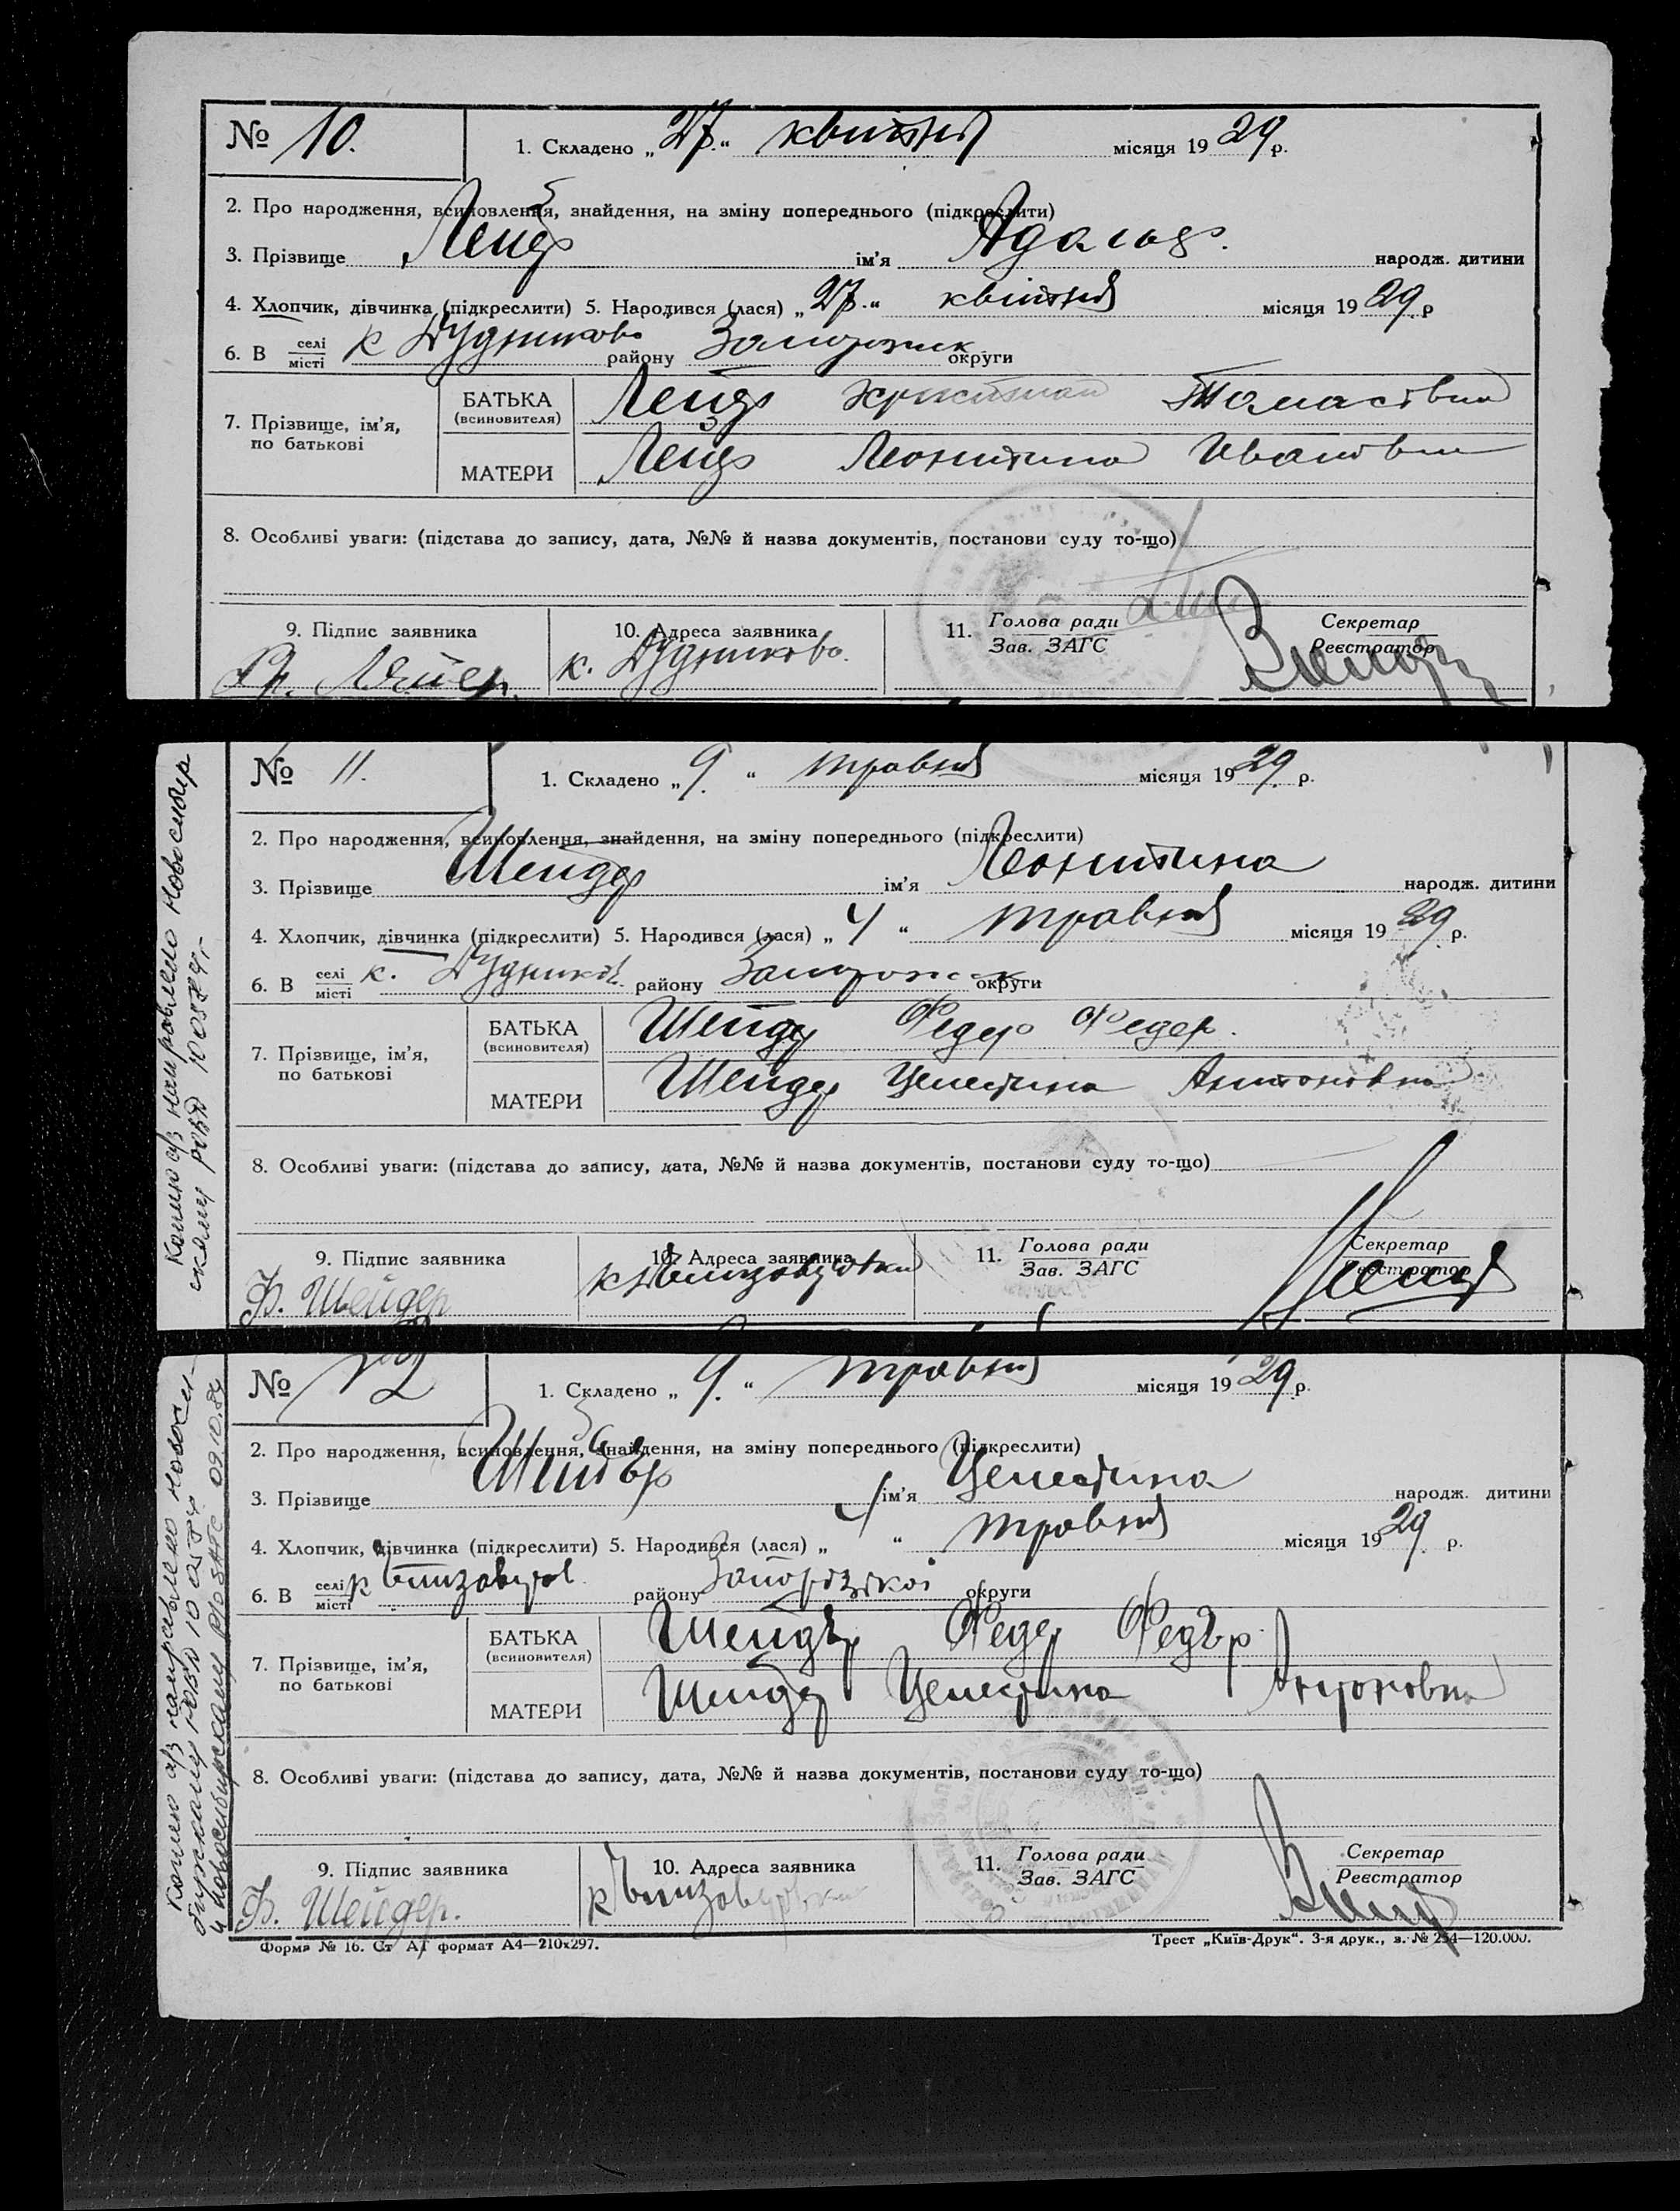 № 10. 1. Складено „27.“ квітня місяця 1929 р.
2. Про народження, всиновлення, знайдення, на зміну попереднього (підкреслити)
3. Прізвище Лейер ім'я народж. дитини
4. Хлопчик, дівчинка (підкреслити) 5. Народився (лася) „27.“ квітня місяця 1929 р
6. В селі місті к Дудниково району Запорожск округи
7. Прізвище, ім'я, по батькові
БАТЬКА (всиновителя) Християн Томасович
МАТЕРИ Леонтина Ивановна
8. Особливі уваги: (підстава до запису, дата, №№ й назва документів, постанови суду то-що)
9. Підпис заявника 10. Адреса заявника 11. Голова ради Зав. ЗАГС Секретар Реєстратор
к. Дудниково.
№ 11. 1. Складено „9.“ травня місяця 1929 р.
2. Про народження, всиновлення, знайдення, на зміну попереднього (підкреслити)
3. Прізвище Шейдер ім'я Леонтина народж. дитини
4. Хлопчик, дівчинка (підкреслити) 5. Народився (лася) „4“ травня місяця 1929 р.
6. В селі місті к. Дудников району Запорожск округи
7. Прізвище, ім'я, по батькові
БАТЬКА (всиновителя) Шейдер Федер Федер.
МАТЕРИ Шейдер Целестина Антоновна
8. Особливі уваги: (підстава до запису, дата, №№ й назва документів, постанови суду то-що)
9. Підпис заявника 10. Адреса заявника 11. Голова ради Зав. ЗАГС Секретар Реєстратор
Ф. Шейдер к Елизаветовки
Копию а/з направлено Новосибир
скому
№ 12 1. Складено „9.“ травня місяця 1929 р.
2. Про народження, всиновлення, знайдення, на зміну попереднього (підкреслити)
3. Прізвище Шейдер ім'я Целестина народж. дитини
4. Хлопчик, дівчинка (підкреслити) 5. Народився (лася) „4“ травня місяця 1929 р.
6. В селі місті к Елизаветов. району Запорізької округи
7. Прізвище, ім'я, по батькові
БАТЬКА (всиновителя) Шейдер Федер Федер.
МАТЕРИ Шейдер Целестина Антоновна
8. Особливі уваги: (підстава до запису, дата, №№ й назва документів, постанови суду то-що)
9. Підпис заявника 10. Адреса заявника 11. Голова ради Зав. ЗАГС Секретар Реєстратор
Ф. Шейдер. к Елизаветовки
Копию а/з направлено Новоси-
бирскому
и Новосибирскому 09.10.84
Форма № 16. Ст АТ формат А4—210х297. Трест „Київ-Друк“. 3-я друк., з. № 254—120.000.